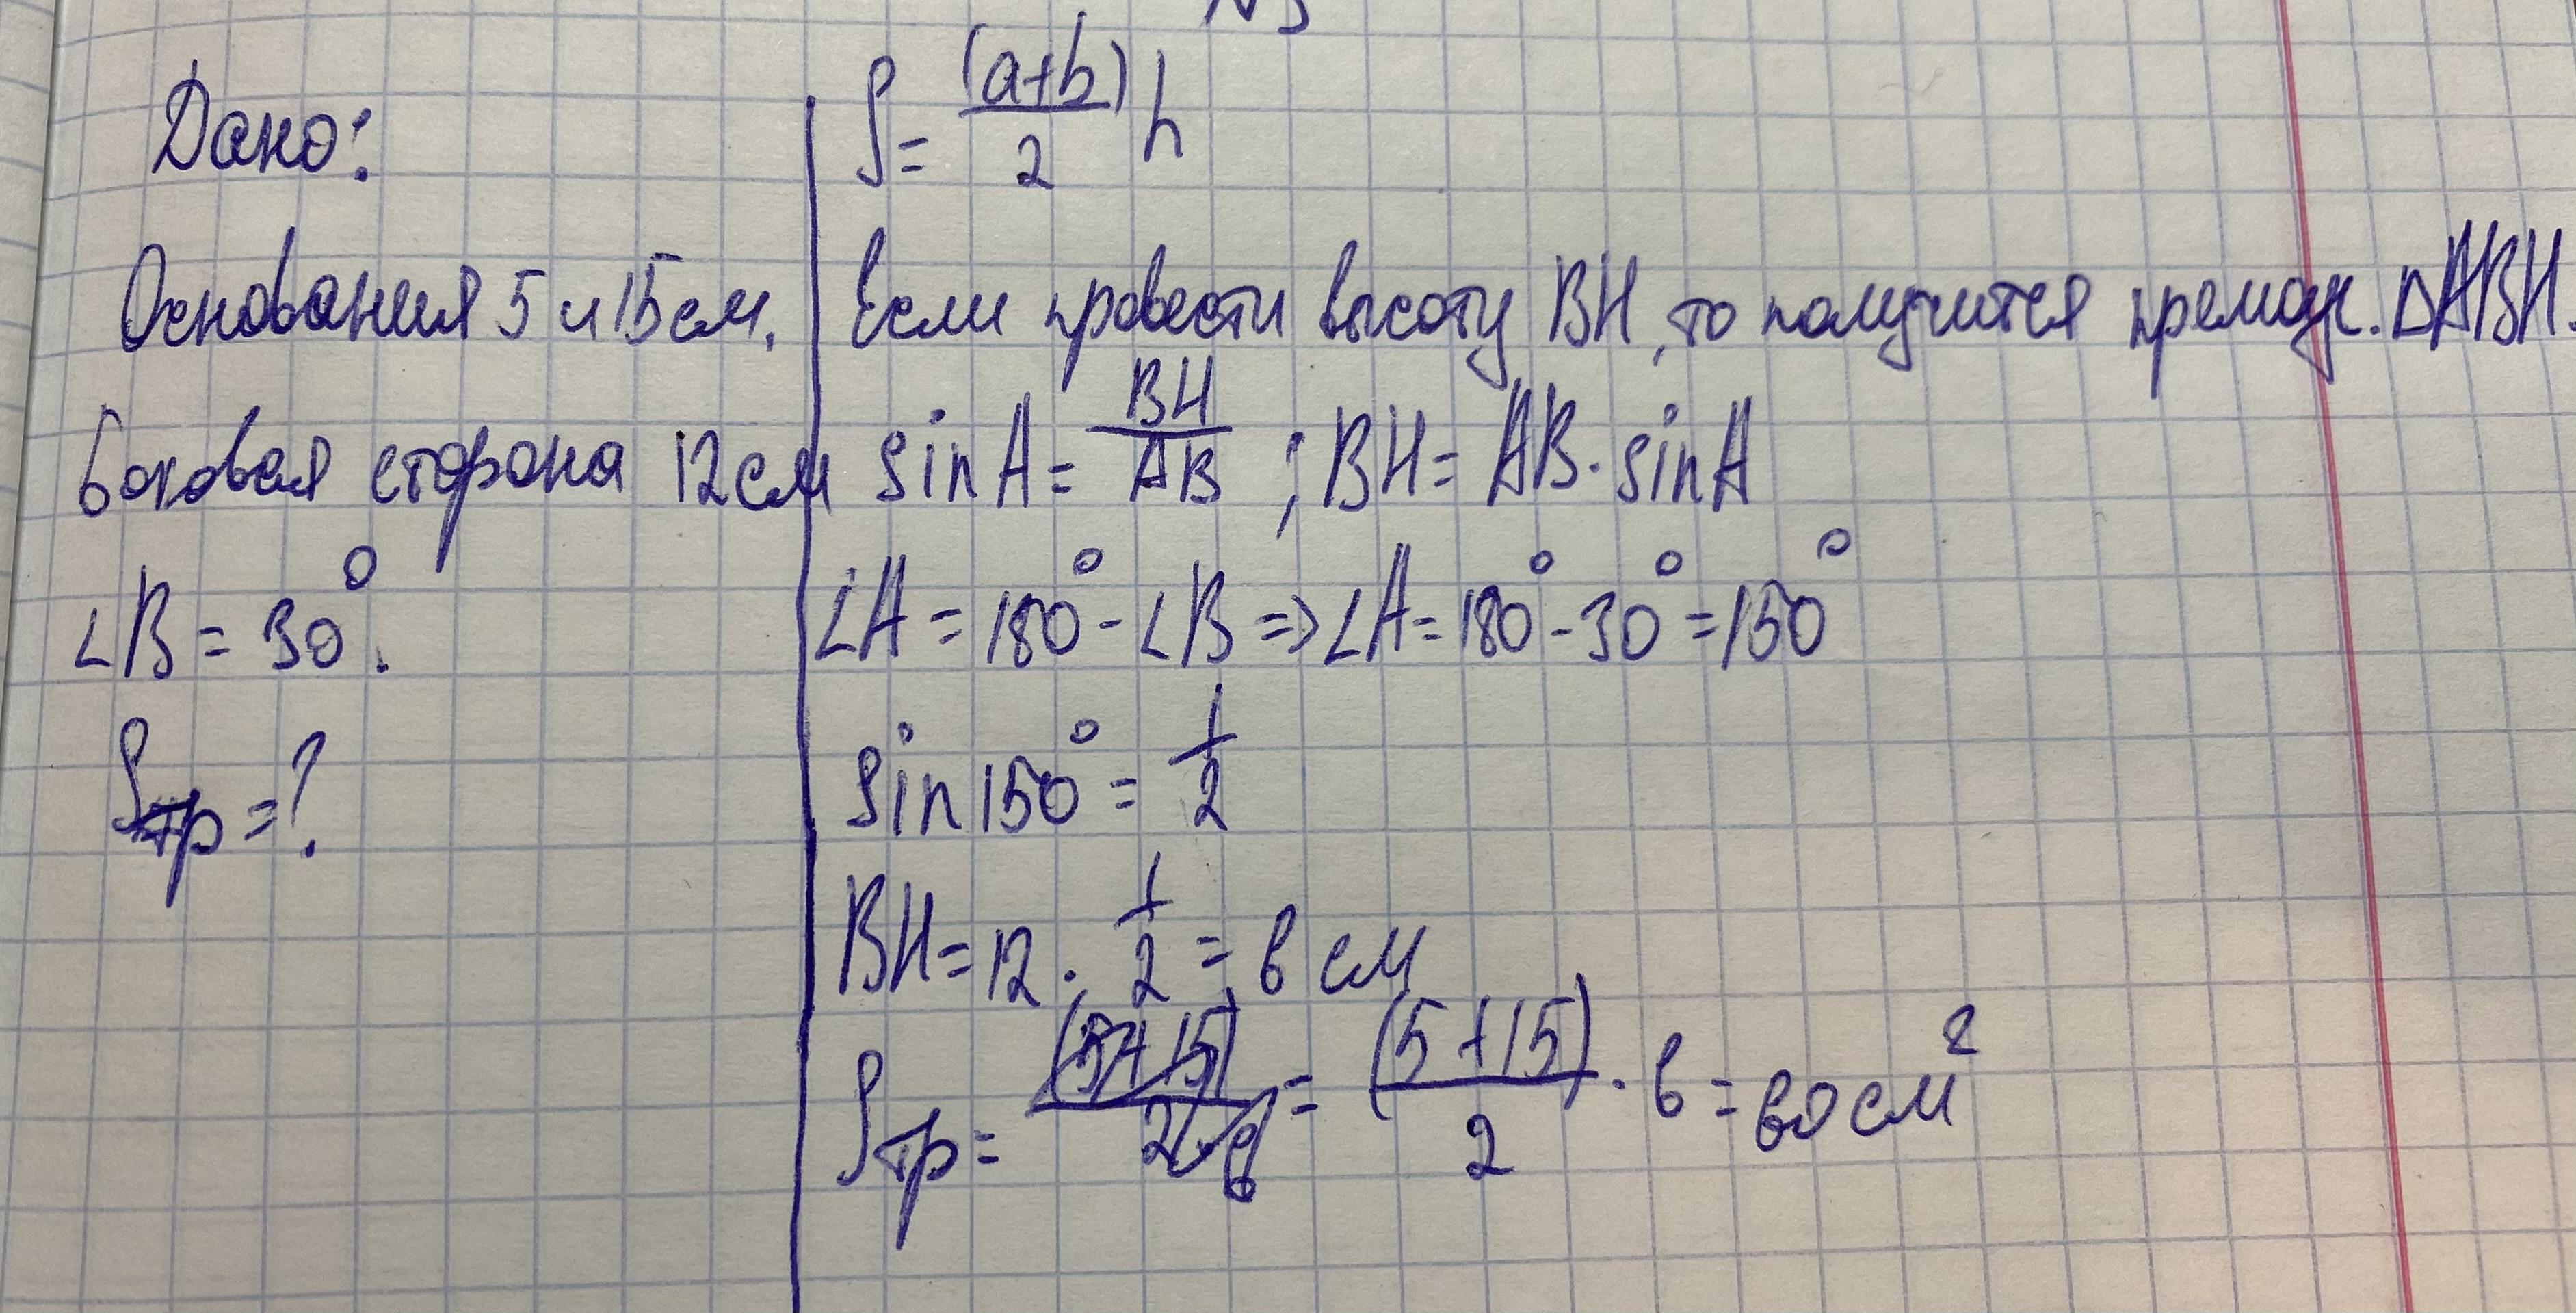 N3
Дано:
Основания 5 и 15 см.
Боковая сторона 12 см
∠B = 30°.
Sтр = ?
S = (a+b)/2 h
Если провести высоту BH, то получится прямоуг. △ABH.
sin A = BH/AB ; BH = AB · sin A
∠A = 180° - ∠B => ∠A = 180° - 30° = 150°
sin 150° = 1/2
BH = 12 · 1/2 = 6 см
Sтр = = (5+15)/2 · 6 = 60 см²